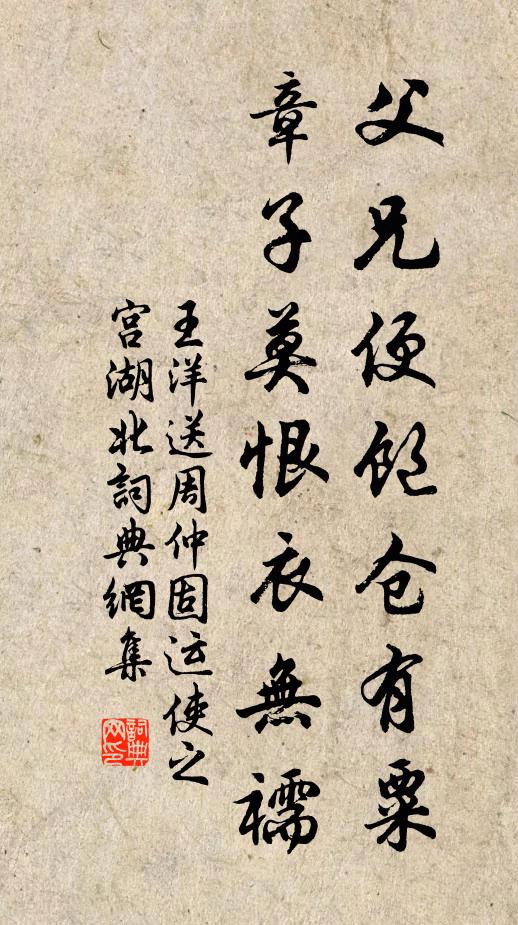 父兄便飽仓有粟
章子莫恨衣無襦
王洋送周仲固运使之
官湖北詞典網集
詞典网印